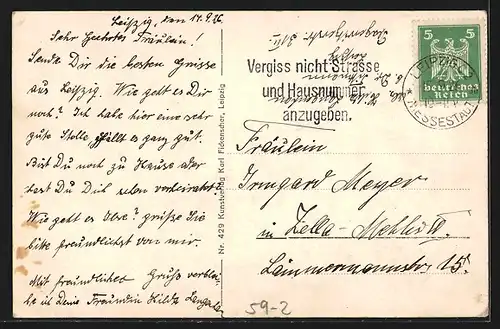 Leipzig, den 14.9.26
Sehr Geehrtes Fräulein!
Sende Dir die besten Grüsse
aus Leipzig. Wie geht es Dir
noch? Ich habe hier eine sehr
gute Stelle gefällt es ganz gut.
Bist Du noch zu Hause oder
hast Du Dich schon verheiratet?
Wie geht es Else? grüße Sie
bitte freundlichst von mir.
Mit freundlichem Gruß verblei-
be ich Deine Freundin Hilde
Nr. 429 Kunstverlag Karl Fickenscher, Leipzig
Vergiss nicht Strasse
und Hausnummer
anzugeben.
5 5
Deutsches
Reich
LEIPZIG
MESSESTADT
Fräulein
Irmgard Meyer
in Zella-Mehlis
15.
59-2